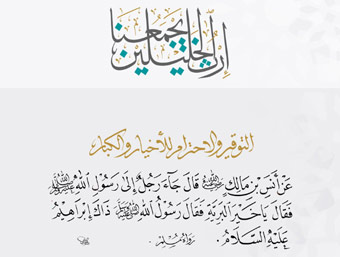 إن الخليلين يجمعنا
التوقير والاحترام للأخيار والكبار
عَنْ أَنَسِ بْنِ مَالِكٍ رضي الله عنه قَالَ جَاءَ رَجُلٌ إِلَى رَسُولِ اللهِ ﷺ
فَقَالَ يَا خَيْرَ الْبَرِيَّةِ فَقَالَ رَسُولُ اللهِ ﷺ ذَاكَ إِبْرَاهِيمُ
عَلَيْهِ السَّلَامُ . رَوَاهُ مُسْلِم .